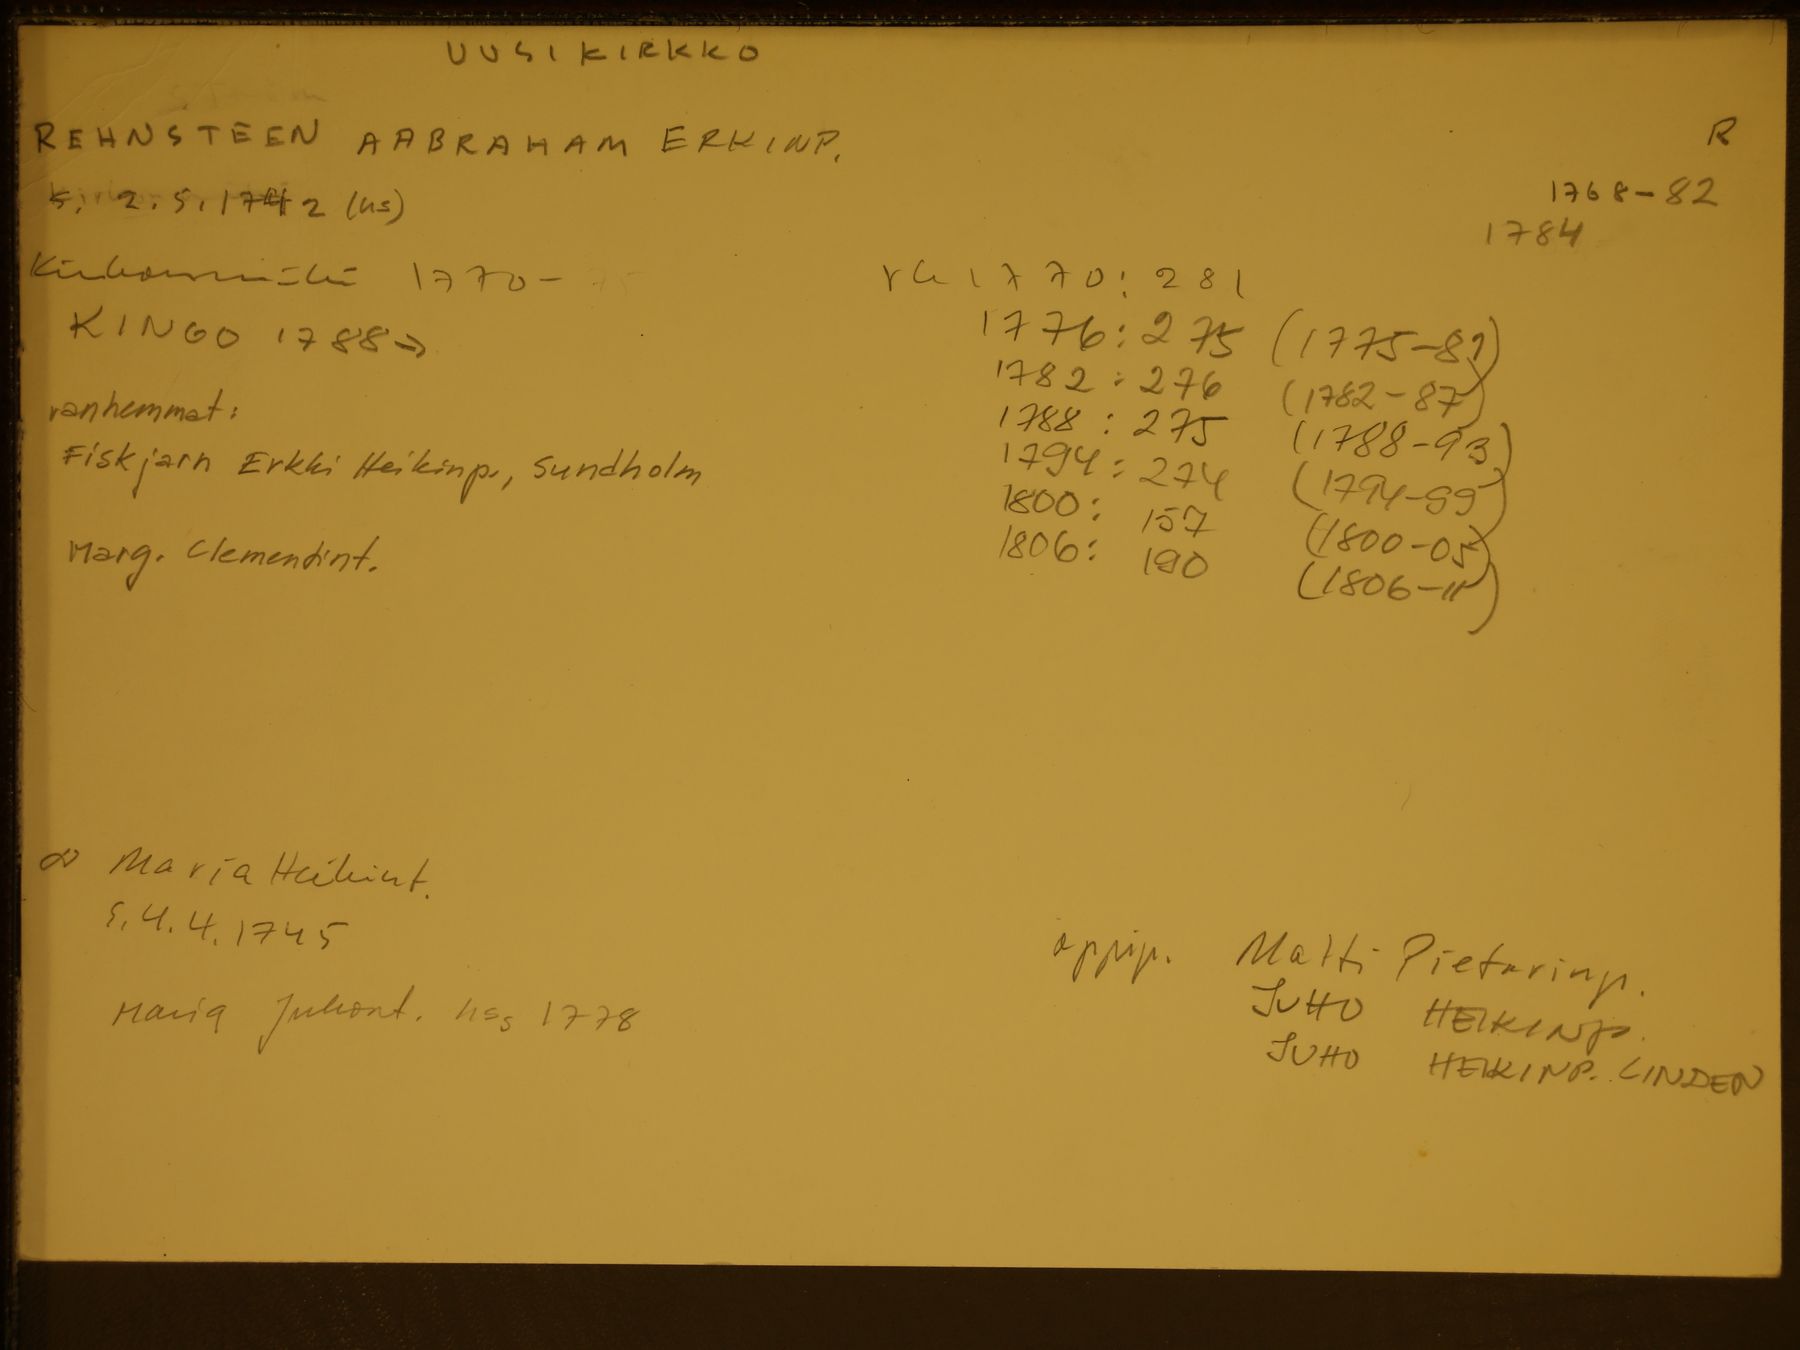 UUSIKIRKKO
REHNSTEEN AABRAHAM ERKINP. R
s. 2.5.1742 (hs) 1768-82
1784
Kirkonmäki 1770- 75 rk 1770: 281
KINGO 1788→ 1776: 275 (1775-81)
1782: 276 (1782-87)
vanhemmat: 1788: 275 (1788-93)
Fiskjarn Erkki Heikinp., Sundholm 1794: 274 (1794-99)
1800: 157 (1800-05)
Marg. Clementint. 1806: 190 (1806-11)
∞ Maria Heikint.
s. 4.4.1745
oppip. Matti Pietarinp.
Maria Juhont. hss 1778 JUHO HEIKINP.
JUHO HEIKINP. LINDEN